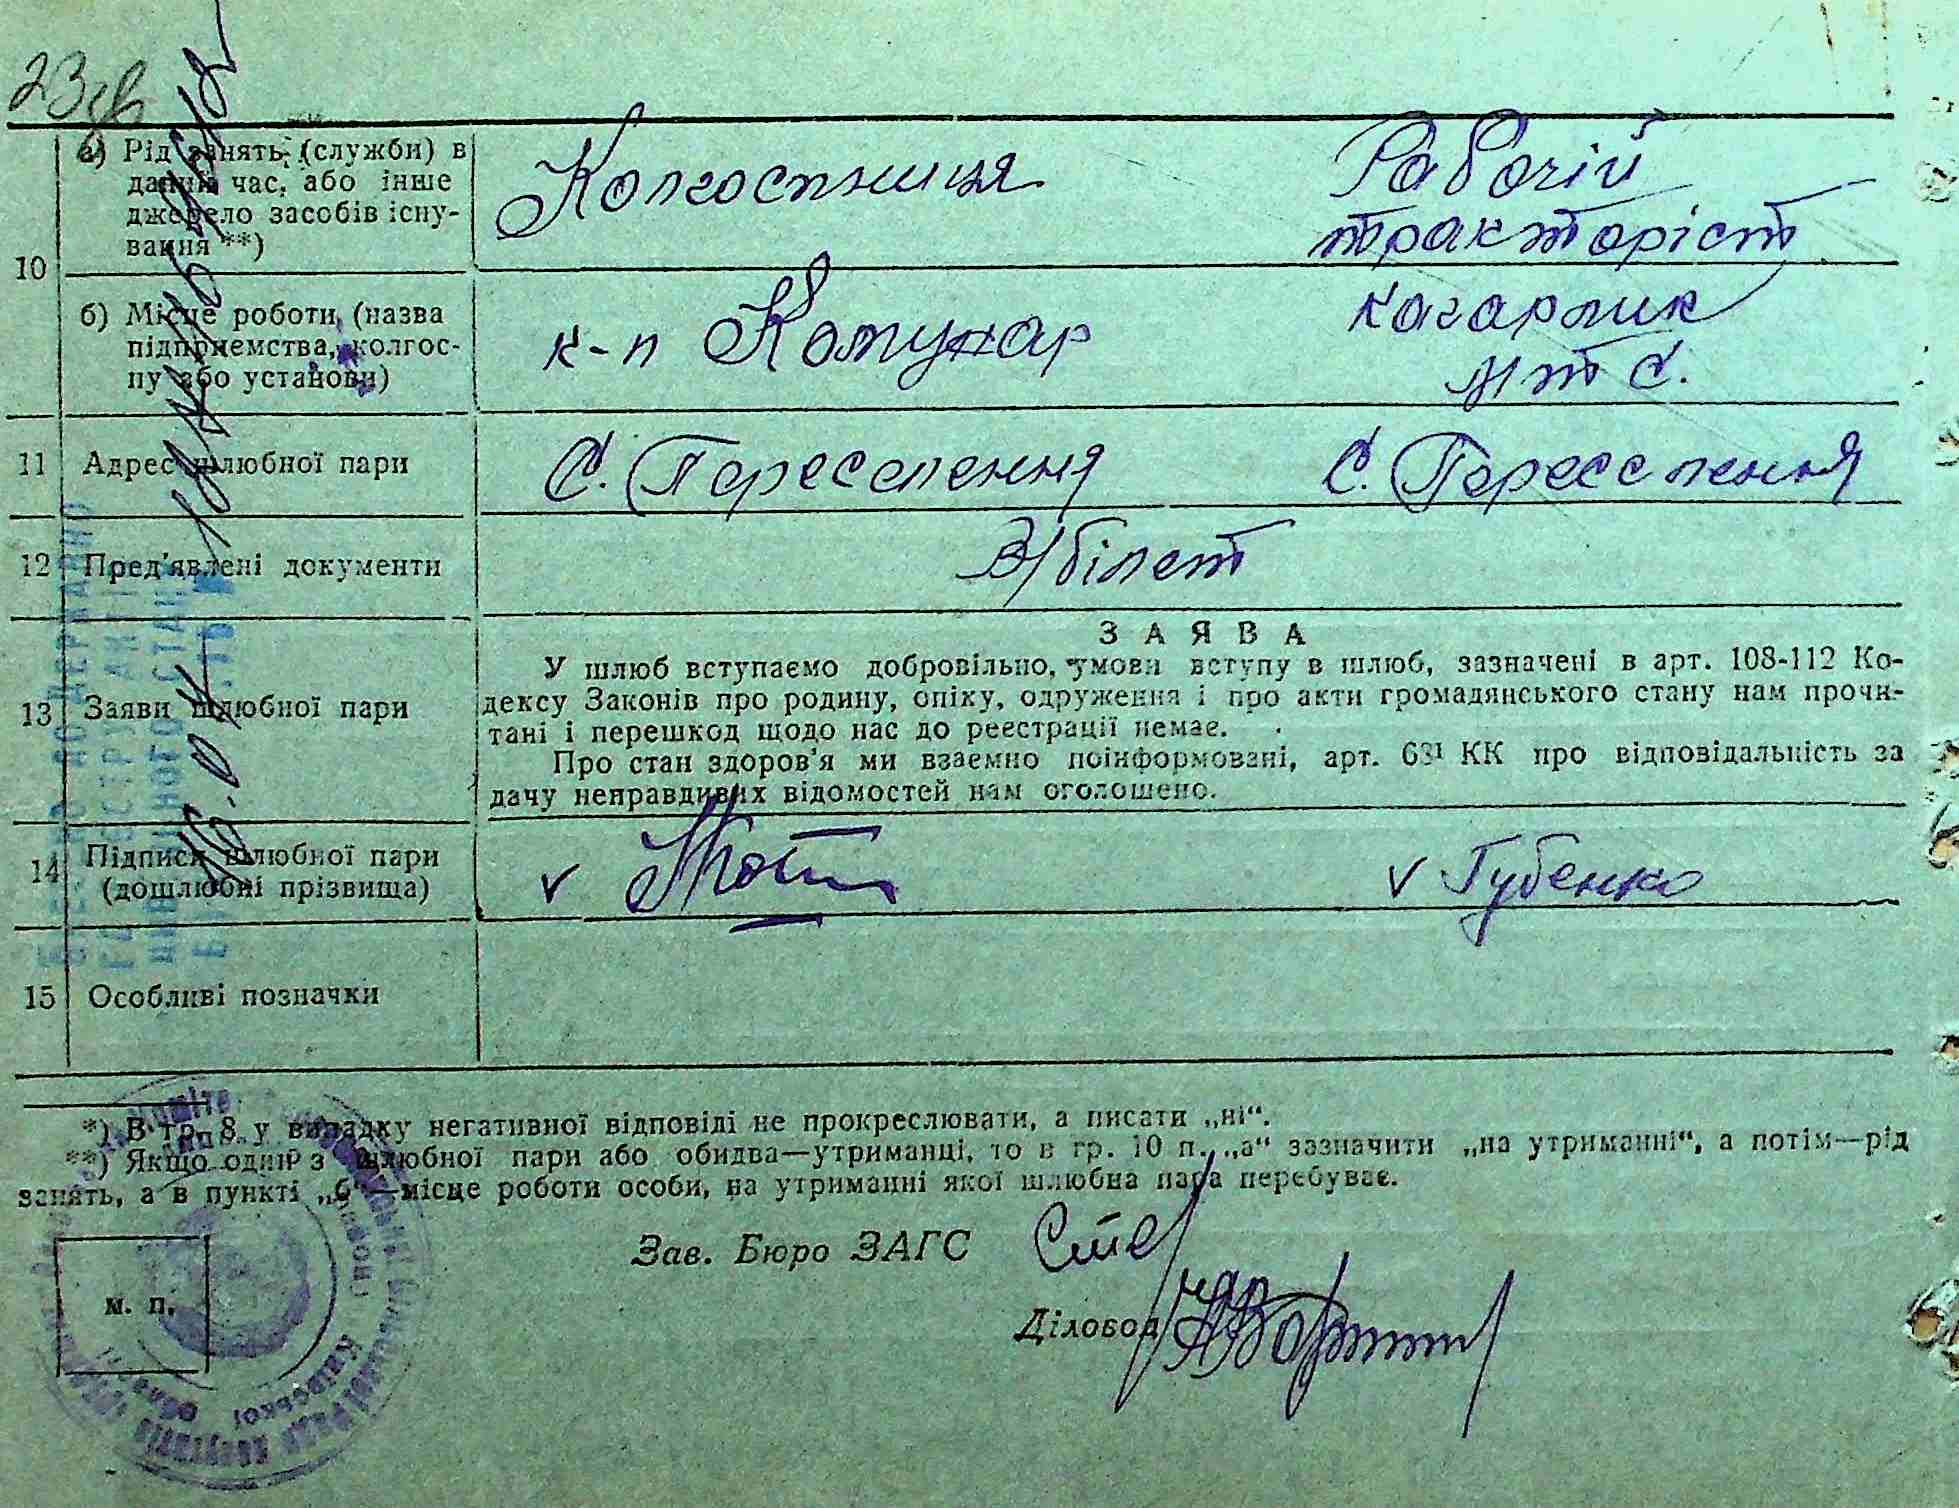 23
10
а) Рід занять (служби) в Колгоспниця Рабочій
даний час, або інше
джерело засобів існу- тракторіст
вання **)
б) Місце роботи (назва к-п Комунар Кагарлик
підприємства, колгос- мтс.
пу або установи)
11 Адрес шлюбної пари С. Переселення С. Переселення
12 Пред'явлені документи В/білет
ЗАЯВА
У шлюб вступаємо добровільно, умови вступу в шлюб, зазначені в арт. 108-112 Ко-
13 Заяви шлюбної пари дексу Законів про родину, опіку, одруження і про акти громадянського стану нам прочи-
тані і перешкод щодо нас до реєстрації немає.
Про стан здоров'я ми взаємно поінформовані, арт. 63¹ КК про відповідальність за
дачу неправдивих відомостей нам оголошено.
14 Підписи шлюбної пари v v Губенко
(дошлюбні прізвища)
15 Особливі позначки
*) В гр. 8 у випадку негативної відповіді не прокреслювати, а писати „ні“.
**) Якщо один з шлюбної пари або обидва—утриманці, то в гр. 10 п. „а“ зазначити „на утриманні“, а потім—рід
занять, а в пункті „б“—місце роботи особи, на утриманні якої шлюбна пара перебуває.
Зав. Бюро ЗАГС
Діловод
м. п.
Київської